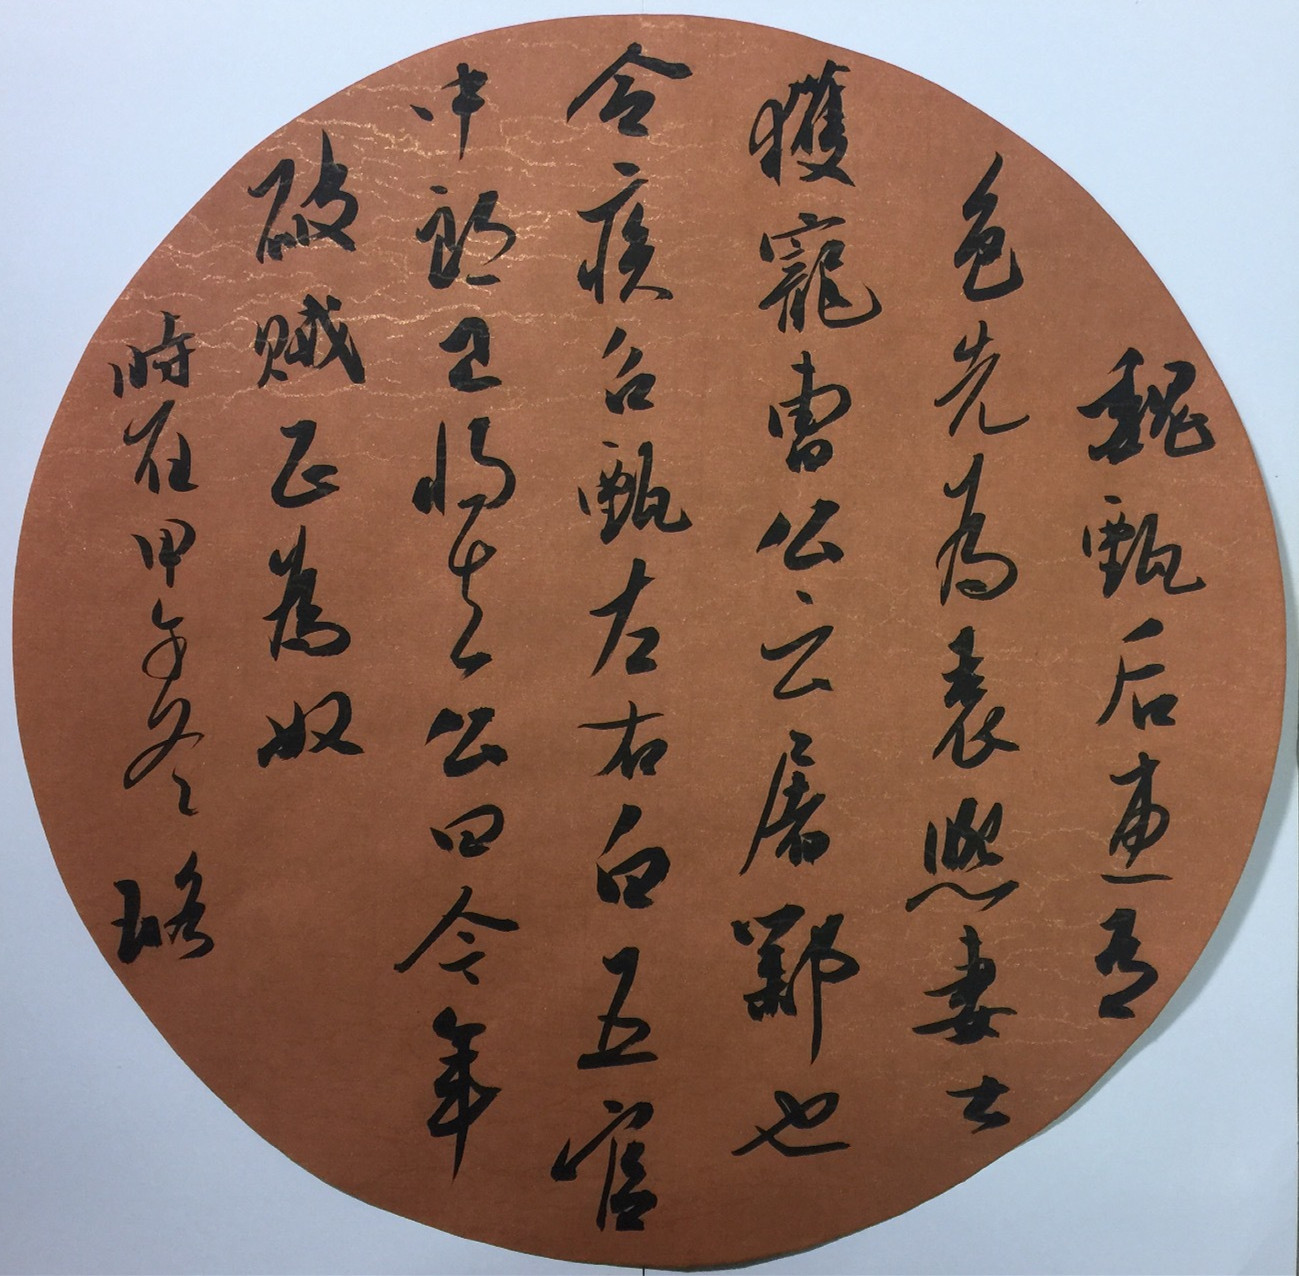 魏甄后惠有
色先為袁熙妻甚
獲寵曹公之屠鄴也
令疾召甄左右白五官
中郎已將去公曰今年
破賊正為奴
時在甲午冬 珞